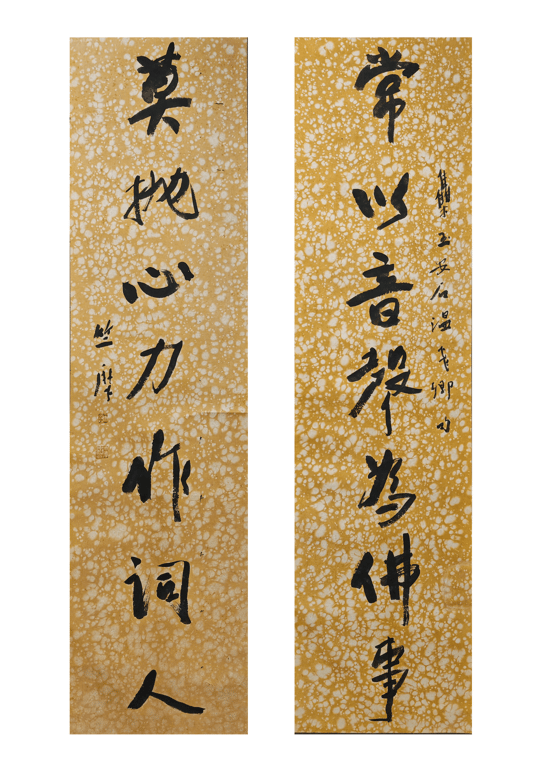 常以音聲為佛事
集王安石溫飛卿句
莫抛心力作词人
竺摩